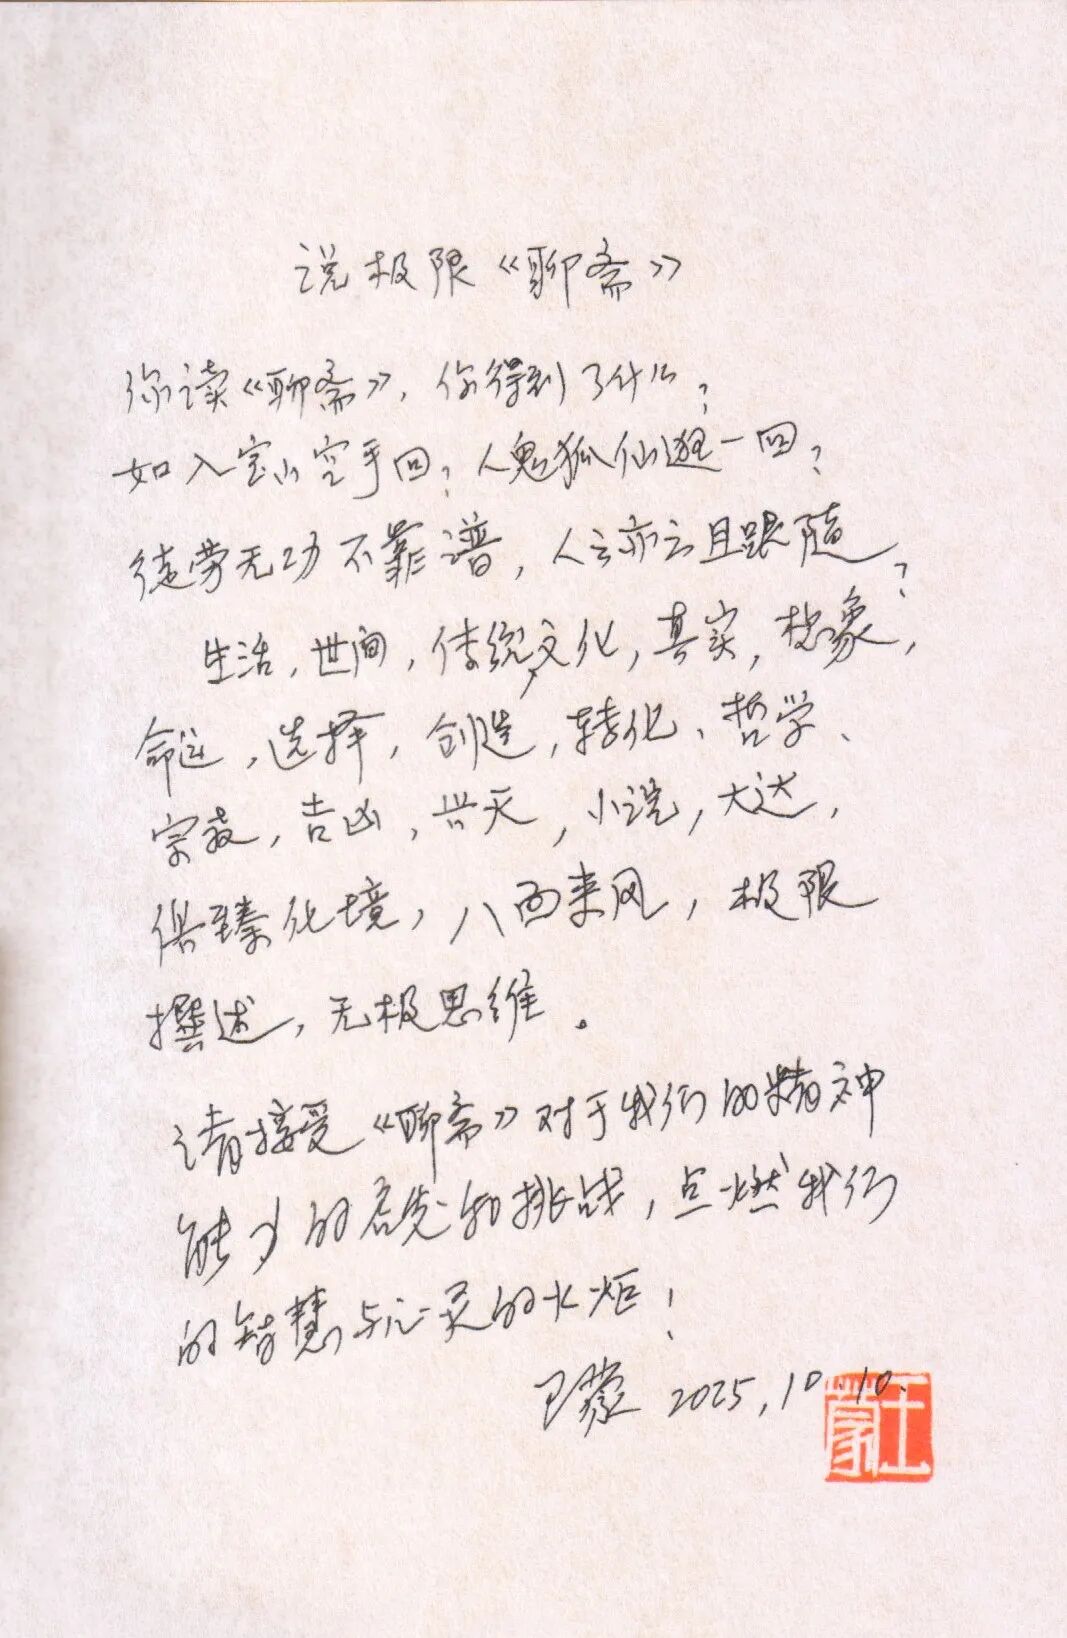 说极限《聊斋》
你读《聊斋》，你得到了什么？
如入宝山空手回？人鬼狐仙逛一回？
徒劳无功不靠谱，人云亦云且跟随？
生活，世间，传统文化，真实，想象，
命运，选择，创造，转化、哲学、
宗教，吉凶，兴灭，小说，大达，
俱臻化境，八面来风，极限
撰述，无极思维。
请接受《聊斋》对于我们的精神
能力的启发和挑战，点燃我们
的智慧与心灵的火炬！
王蒙 2025.10.10.
王蒙